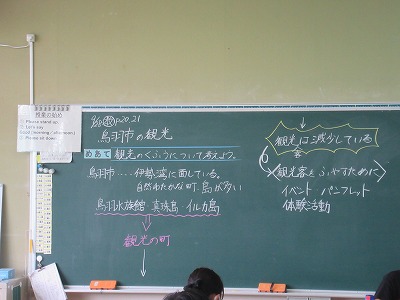 授業の始め
Please stand up.
Let's say
Good (morning / afternoon)
Please sit down.
P20.21
鳥羽市の観光
めあて 観光のくふうについて考えよう。
鳥羽市……伊勢湾に面している。
自然ゆたかな町・島が多い
鳥羽水族館 真珠島 イルカ島
観光の町
観光は減少している
客
観光客をふやすために
イベント パンフレット
体験活動